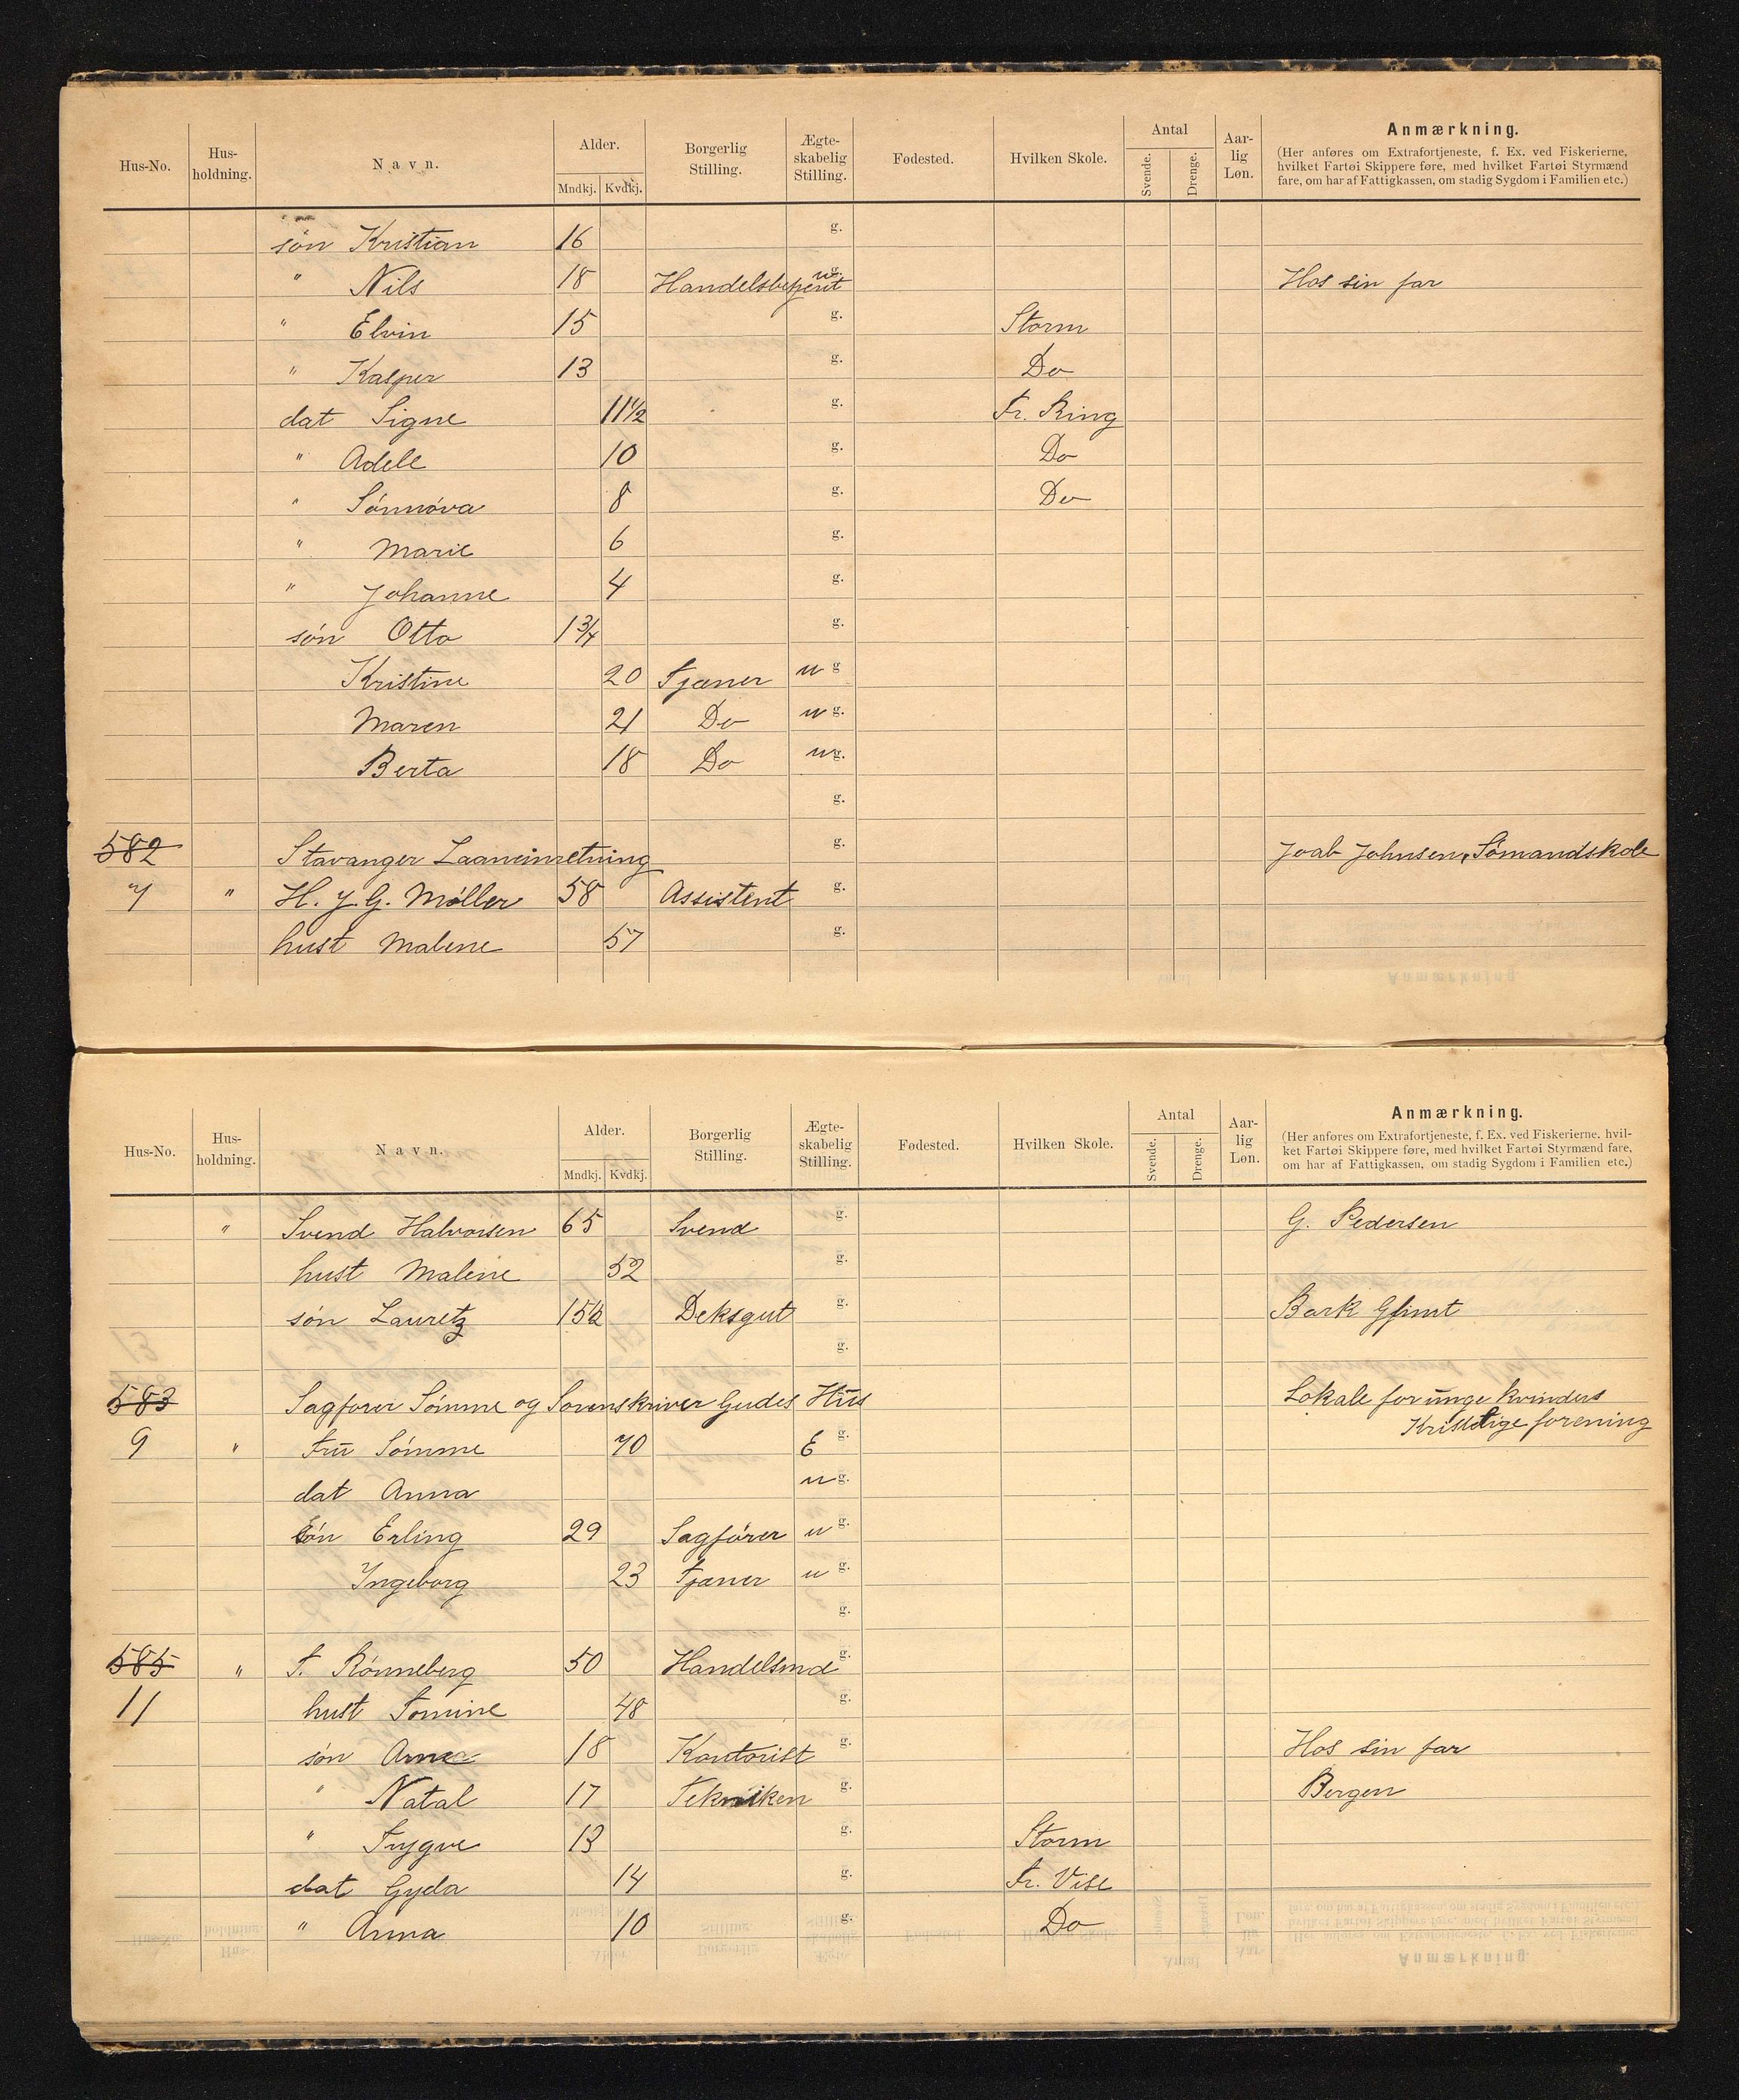 Hus-No. Hus-holdning. Navn. Alder. Mndkj. Kvdkj. Borgerlig Stilling. Ægte-skabelig Stilling. Fødested. Hvilken Skole. Antal Svende. Drenge. Aar-lig Løn. Anmærkning.
(Her anføres om Extrafortjeneste, f. Ex. ved Fiskerierne,
hvilket Fartøi Skippere føre, med hvilket Fartøi Styrmænd
fare, om har af Fattigkassen, om stadig Sygdom i Familien etc.)
søn Kristian 16 g.
" Nils 18 Handelsbetjent ug. Hos sin far
" Elvin 15 g. Storm
" Kasper 13 g. Do
dat Signe 11½ g. Fr. Ring
" Adele 10 g. Do
" Sønnøva 8 g. Do
" Marie 6 g.
" Johanne 4 g.
søn Otto 1¾ g.
Kristine 20 Tjener u g
Maren 21 Do u g.
Berta 18 Do u g.
g.
582 Stavanger Laaneinretning g. Joab Johnsen, Sømandskole
7 " H. J. G. Møller 58 Assistent g.
hust Malene 57 g.
Hus-No. Hus-holdning. Navn. Alder. Mndkj. Kvdkj. Borgerlig Stilling. Ægte-skabelig Stilling. Fødested. Hvilken Skole. Antal Svende. Drenge. Aar-lig Løn. Anmærkning.
(Her anføres om Extrafortjeneste, f. Ex. ved Fiskerierne, hvil-
ket Fartøi Skippere føre, med hvilket Fartøi Styrmænd fare,
om har af Fattigkassen, om stadig Sygdom i Familien etc.)
" Svend Halvorsen 65 Svend g. G. Pedersen
hust Malene 52 g.
søn Lauretz 15½ Deksgut g. Bark Glimt
g.
583 Sagfører Sømme og Sorenskriver Gudes Hus Lokale for unge kvinders
Kristelige forening
9 " Fru Sømme 70 E g.
dat Anna u g.
søn Erling 29 Sagfører u g.
Ingeborg 23 Tjener u g.
g.
585 " T. Rønneberg 50 Handelsmd g.
11 hust Tomine 48 g.
søn Arne 18 Kontorist g. Hos sin far
" Natal 17 Tekniken g. Bergen
" Trygve 13 g. Storm
dat Gyda 14 g. Fr. Vise
" Anna 10 g. Do